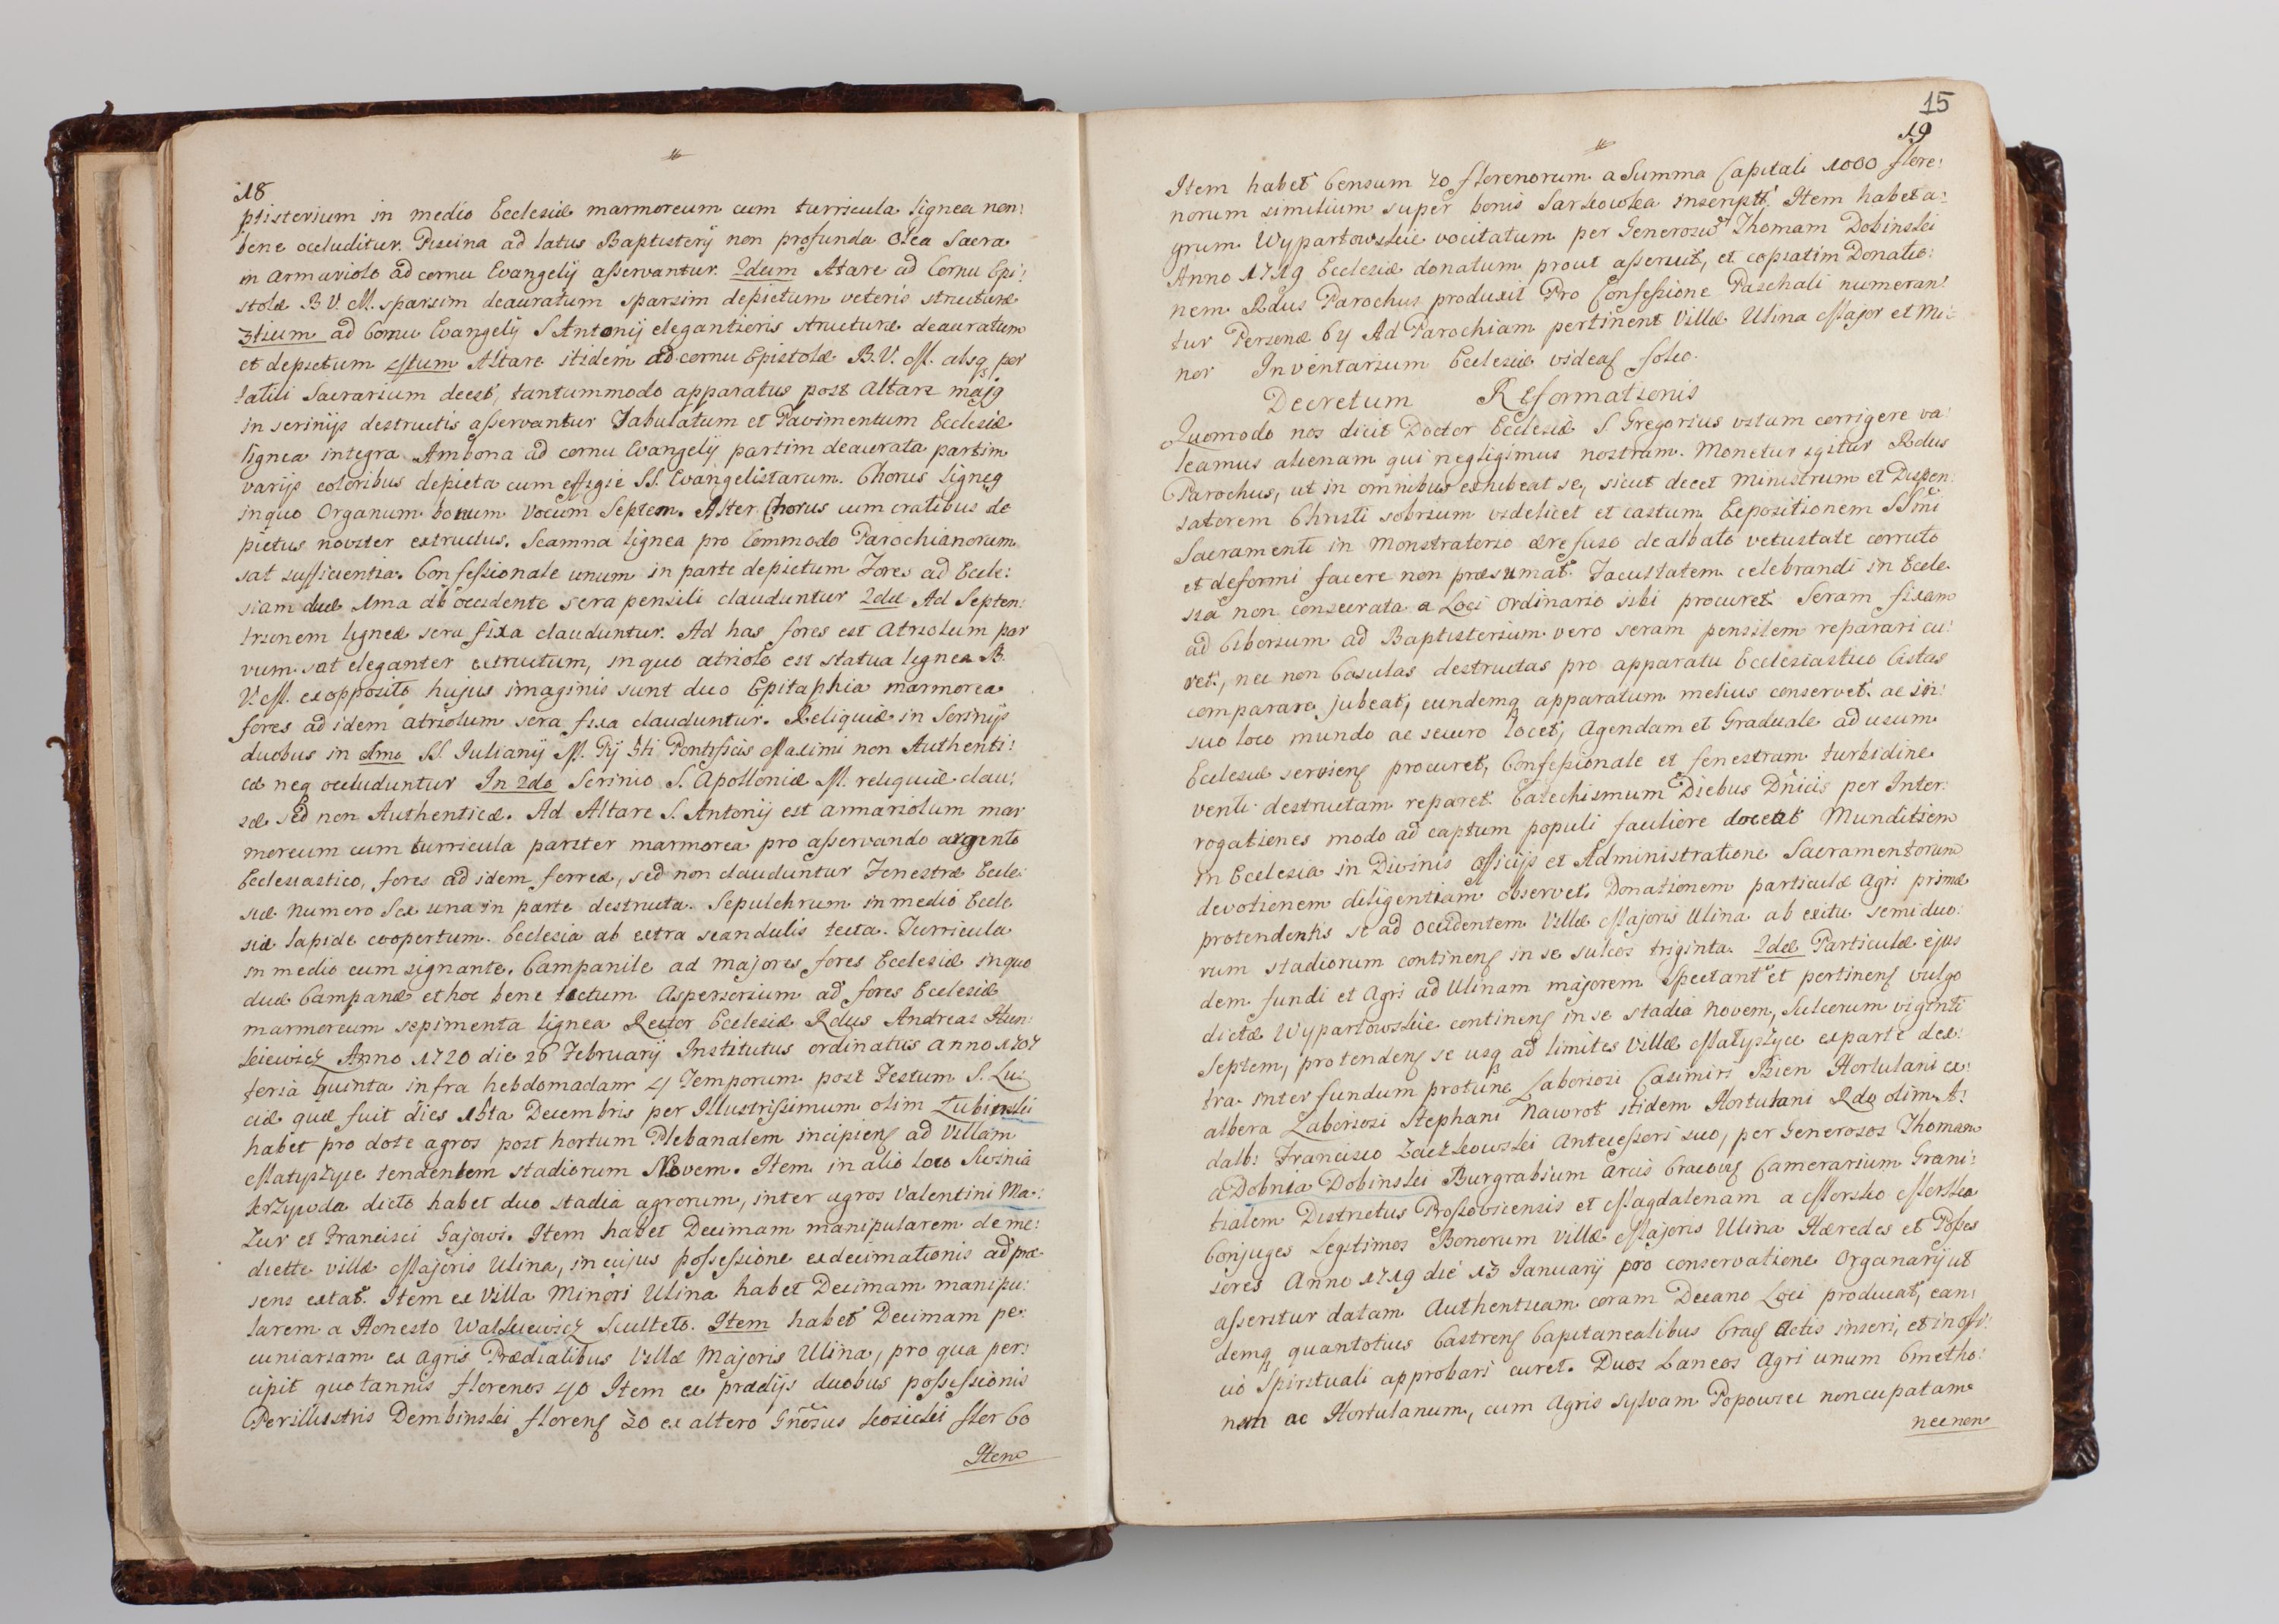 18
ptisterium in medio Ecclesiæ marmoreum cum turricula lignea non:
bene occluditur. Piscina ad latus Baptisterij non profunda Olea Sacra
in armariolo ad cornu Evangelij asservantur. 2dum Altare ad Cornu Epi:
stolæ B V. M. sparsim deauratum sparsim depictum veteris structuræ
3tium ad Cornu Evangelij S Antonij elegantioris structuræ deauratum
et depictum 4tum Altare itidem ad cornu Epistolæ B. V. M. absq por
tatili Sacrarium deest, tantummodo apparatus post Altare maig
in scrinijs destructis asservantur Tabulatum et Pavimentum Ecclesiæ
lignea integra Ambona ad cornu Evangelij partim deaurata partim
varijs coloribus depicta cum effigie SS. Evangelistarum. Chorus ligneg
in quo Organum bonum Vocum Septem. Alter Chorus cum cratibus de
pictus noviter extructus. Scamna lignea pro Commodo Parochianorum
sat sufficientia. Confessionale unum in parte depictum Fores ad Eccle:
siam duæ 1ma ab occidente sera pensili clauduntur 2dæ Ad Septen:
trionem ligneæ sera fixa clauduntur. Ad has fores est Atriolum par
vum sat eleganter extructum, in quo atriolo est statua lignea B.
V. M. ex opposito hujus imaginis sunt duo Epitaphia marmorea
fores ad idem atriolum sera fixa clauduntur. Reliquiæ in Scrinijs
duobus in 1mo SS. Iulianij M. Pij 5ti Pontificis Maximi non Authenti:
cæ neq occluduntur In 2do Scrinio S. Apolloniæ M. reliquiæ clau:
sæ sed non Authenticæ. Ad Altare S. Antonij est armariolum mar
moreum cum turricula pariter marmorea pro asservando argento
Ecclesiastico, fores ad idem ferreæ, sed non clauduntur Fenestræ Eccle:
siæ Numero Sex una in parte destructa. Sepulchrum in medio Eccle
siæ lapide coopertum. Ecclesia ab extra scandulis tecta. Turricula
in medio cum signante. Campanile ad Majores fores Ecclesiæ in quo
duæ Campanæ et hoc bene tectum Aspersorium ad fores Ecclesiæ
marmoreum sepimenta lignea Rector Ecclesiæ Rdus Andreas Hun:
kiewicz Anno 1720 die 26 Februarij Institutus ordinatus anno 1707
feria quinta infra hebdomadam 4 Temporum post Festum S. Lu:
ciæ quæ fuit dies 16ta Decembris per Illustrissimum olim Łubienski
habet pro dote agros post hortum Plebanalem incipieng ad Villam
Małyszyce tendentem stadiorum Novem. Item in alio loco Swinia
krzywda dicto habet duo stadia agrorum, inter agros Valentini Ma:
zur et Francisci Gajowi. Item habet Decimam manipularem de me:
dictte villæ Majoris Ulina, in cujus possessione exdecimationis ad præ
sens extat. Item ex Villa Minori Ulina habet Decimam manipu:
larem a Honesto Walkiewicz Sculteto. Item habet Decimam pe:
cuniariam ex agris Prædialibus Villæ Majoris Ulina, pro qua per:
cipit quotannis florenos 40 Item ex prædijs duobus possessionis
Perillustris Dembinski floreng 30 ex altero Gnosus kosicki flor 60
Item
15
19
Item habet Censum 70 florenorum a Summa Capitali 1000 flore:
norum similium super bonis Sarkowka inscript. Item habet a:
grum Wypartowskie vocitatum per Generosum Thomam Dobinski
Anno 1719 Ecclesiæ donatum prout asseruit, et copiatim Donatio:
nem Rdus Parochus produxit Pro Confessione Paschali numeran:
tur Personæ 64 Ad Parochiam pertinent Villæ Ulina Major et Mi:
nor Inventarium Ecclesiæ videag folio.
Decretum Reformationis
Quomodo nos dicit Doctor Ecclesiæ S. Gregorius vitam corrigere va:
leamus alienam qui negligimus nostram. Monetur igitur Rdus
Parochus, ut in omnibus exhibeat se, sicut decet Ministrum et Dispen:
satorem Christi sobrium videlicet et castum Expositionem SSmi
Sacramenti in Monstratorio ære fuso dealbato vetustate corruto
et deformi facere non præsumat. Facultatem celebrandi in Eccle
sia non consecrata a Loci Ordinario sibi procuret Seram fixam
ad Ciborium ad Baptisterium vero seram pensilem reparari cu:
ret, nec non Casulas destructas pro apparatu Ecclesiastico Cistas
comparare jubeat, eundemq apparatum melius conservet ac in:
suo loco mundo ac securo locet, Agendam et Graduale ad usum
Ecclesiæ servieng procuret, Confessionale et fenestram turbidine
venti destructam reparet. Catechismum Diebus Dnicis per Inter:
rogationes modo ad captum populi faciliore doceat Munditiem
in Ecclesia in Divinis Officijs et Administratione Sacramentorum
devotionem diligentiam observet. Donationem particulæ agri primæ
protendentis se ad Occidentem Villæ Majoris Ulina ab exitu semiduo:
rum stadiorum contineng in se sulcos triginta. 2dæ Particulæ ejus
dem fundi et Agri ad Ulinam majorem spectant et pertineng vulgo
dictæ Wypartowskie contineng in se stadia novem, Sulcorum viginti
septem, protendeng se usq ad limites Villæ Małyszyce ex parte dex:
tra inter fundum protunc Laboriosi Casimiri Bien Hortulani ex:
albera Laboriosi Stephani Nawrot itidem Hortulani Rdo olim A:
dalb: Francisco Zaczkowski Antecessori suo, per Generosos Thomam
a Dobnia Dobinski Burgrabium Arcis Cracovg Camerarium Grani:
tialem Districtus Proszovicensis et Magdalenam a Morsko Morska
Conjuges Legitimos Bonorum Villæ Majoris Ulina Hæredes et Posses
sores Anno 1719 die 13 Ianuarij pro conservatione Organarij ut
asseritur datam Authenticam coram Decano Loci producat, ean:
demq quantotius Castreng Capitanealibus Crag Actis inseri, et in offi:
cio Spirituali approbari curet. Duos Laneos Agri unum Cmetho:
nem ac Hortulanum, cum Agris sylvam Popowiec noncupatam
nec non